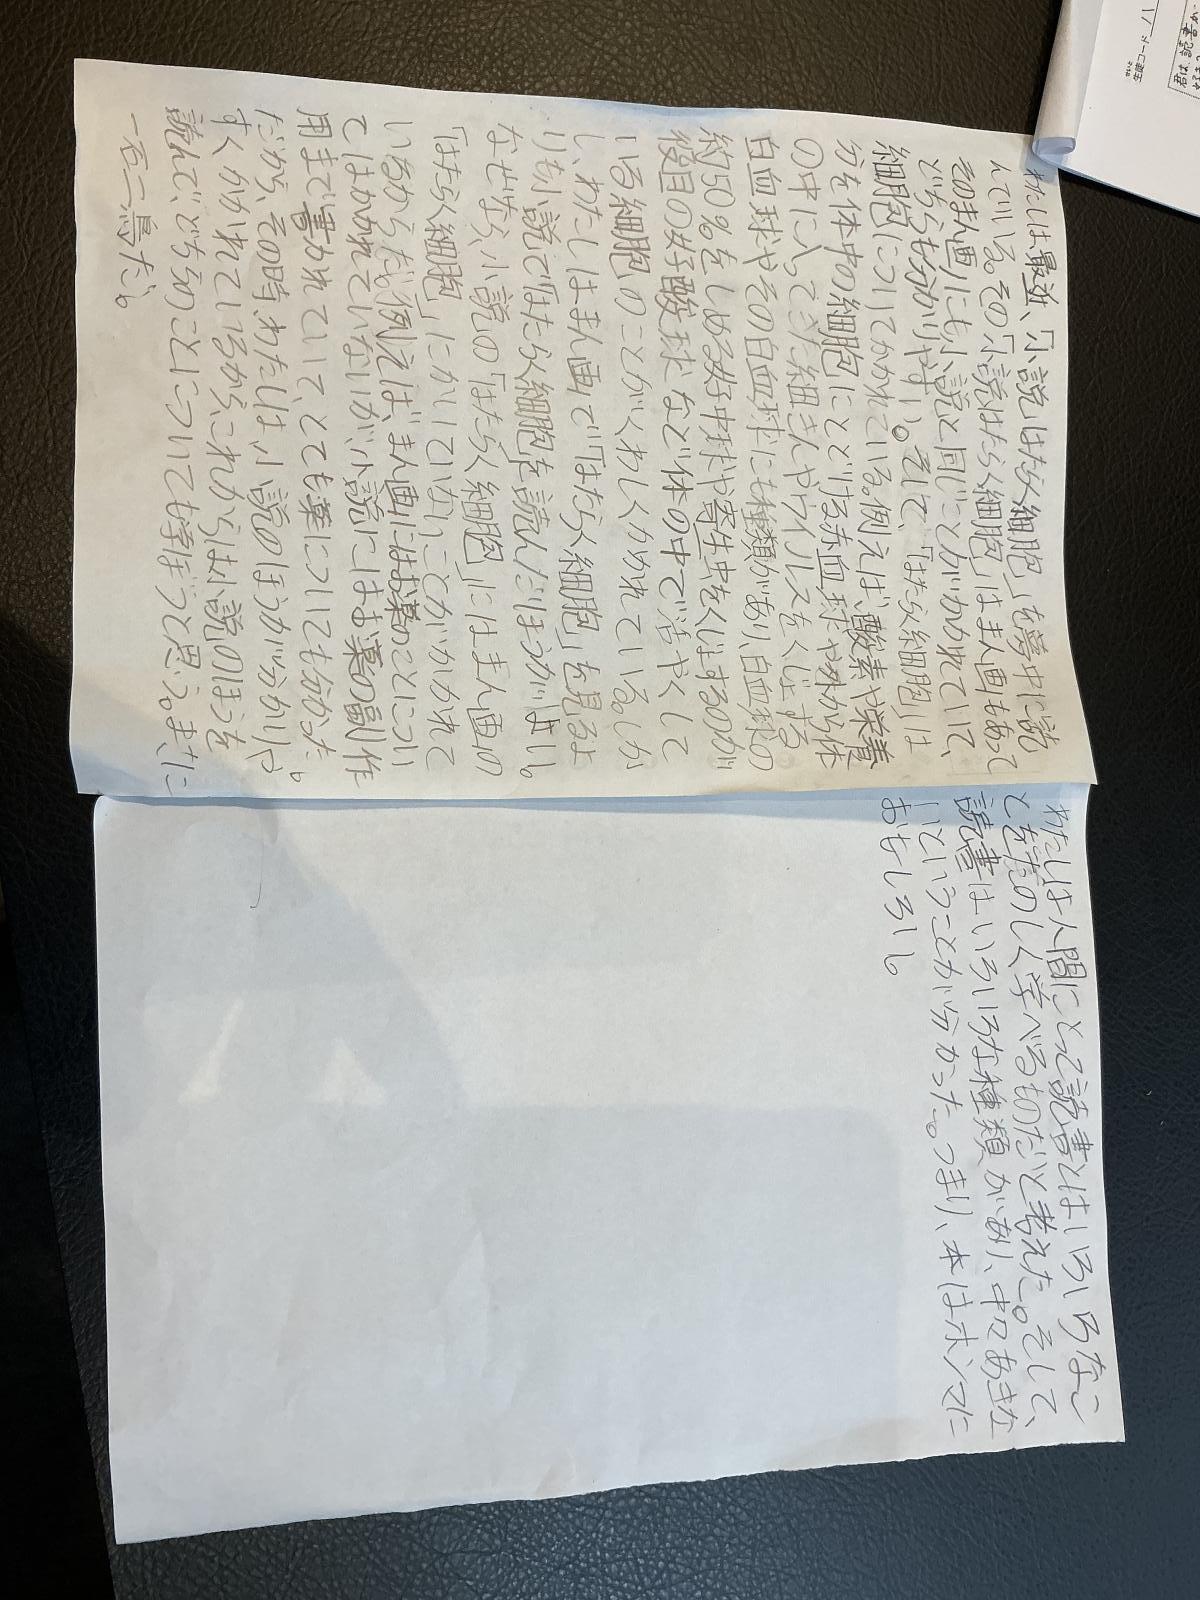 わたしは最近、「小説はたらく細胞」を夢中に読
んでいる。その「小説はたらく細胞」はまん画もあって
そのまん画にも小説と同じことがかかれていて、
どちらも分かりやすい。そして、「はたらく細胞」は
細胞についてかかれている。例えば、酸素や栄養
分を体中の細胞にとどける赤血球や外から体
の中に入ってきた細きんやウイルスをくじょする
白血球やその白血球にも種類があり、白血球の
約50%をしめる好中球や寄生虫をくじょするのが
役目の好酸球など体の中で活やくして
いる細胞のことがくわしくかかれている。しか
し、わたしはまん画で「はたらく細胞」を見るよ
りも小説で「はたらく細胞」を読んだほうがいい。
なぜなら、小説の「はたらく細胞」にはまん画の
「はたらく細胞」にかいていないことがかかれて
いるからだ。例えば、まん画にはお薬のことについ
てはかかれていないが、小説にはお薬の副作
用まで書かれていて、とても薬についても分かった。
だから、その時、わたしは小説のほうが分かりや
すくかかれているから、これからは小説のほうを
読んで、どちらのことについても学ぼうと思う。まさに
一石二鳥だ。
わたしは人間にとって読書とはいろいろなこ
とをたのしく学べるものだと考えた。そして、
読書はいろいろな種類があり、中々あきな
いということが分かった。つまり、本はホンマに
おもしろい
生徒コード
君は、読書が